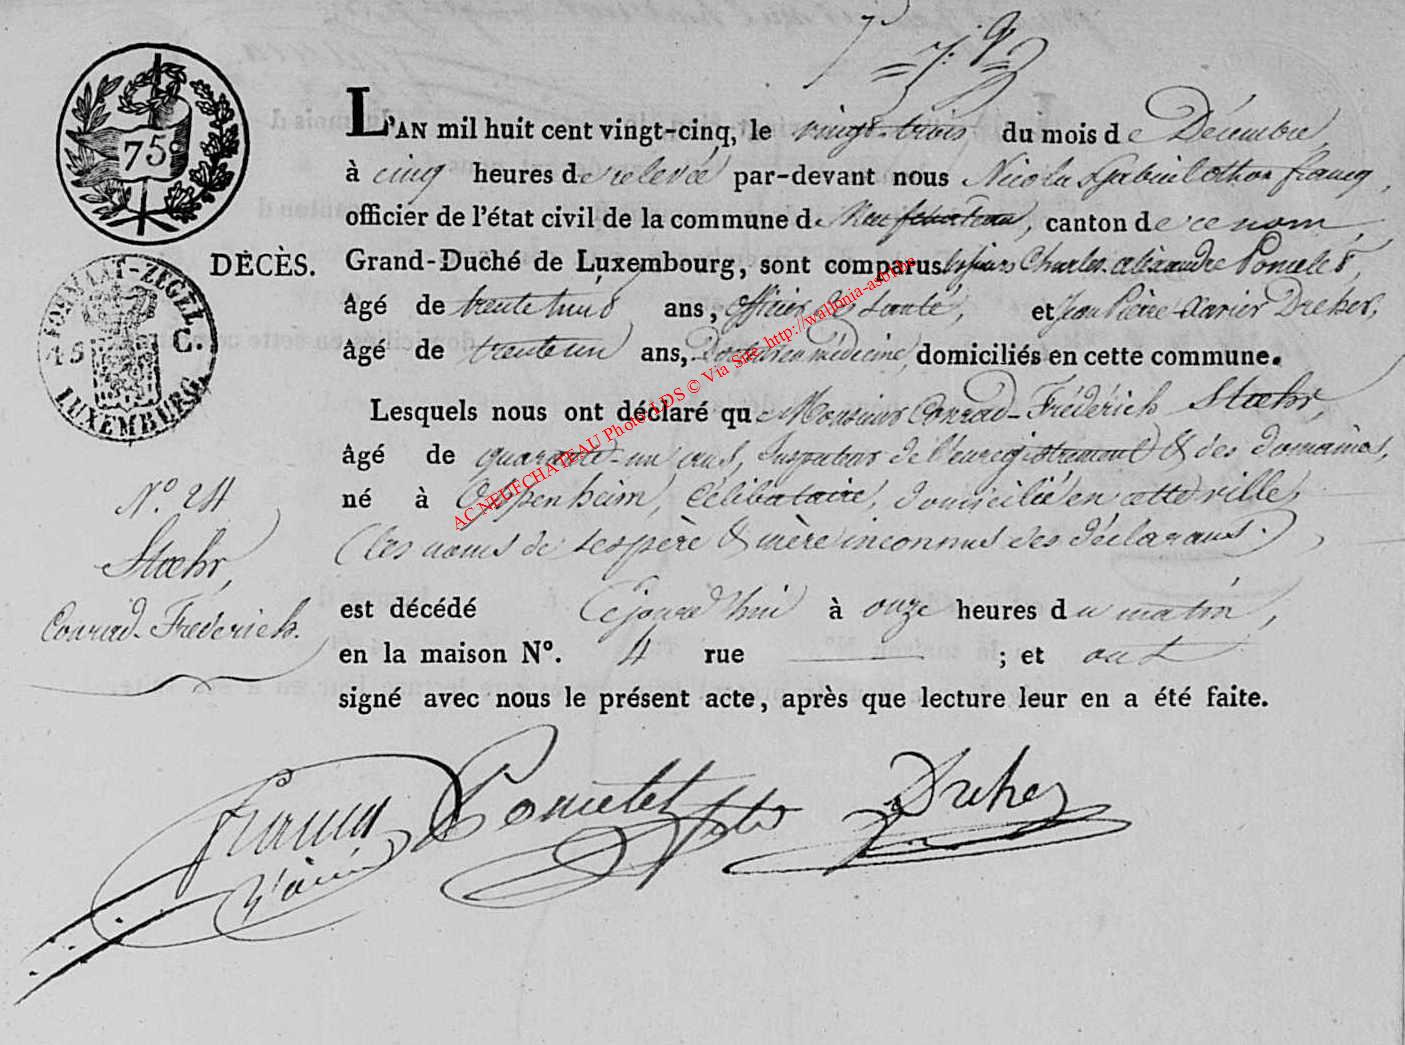 75 c
L'AN mil huit cent vingt-cinq, le vingt-trois du mois de Décembre,
à cinq heures de relevée par-devant nous Nicolas francq,
officier de l'état civil de la commune de Neufchateau, canton de ce nom,
DÉCÈS. Grand-Duché de Luxembourg, sont comparus Charles-alexandre Poncelet,
FORMAAT-ZEGEL
45 C.
LUXEMBURG.
âgé de trente ans, officier de Santé, et Jean Pierre Xavier Dreher,
âgé de trente un ans, Docteur en médecine, domiciliés en cette commune.
Lesquels nous ont déclaré que Monsieur Conrad-Fréderich Stœhr,
âgé de quarante-un ans, Inspecteur de l'enregistrement & des domaines,
né à Oppenheim, Célibataire, domicilié en cette ville,
(les noms de ses père & mère inconnus des déclarans.)
N.º 24
Stœhr,
Conrad-Fréderich.
est décédé Cejourd'hui à onze heures du matin,
en la maison Nº. 4 rue ; et ont
signé avec nous le présent acte, après que lecture leur en a été faite.
francq
l'ainé
Poncelet
Dreher
AC NEUFCHATEAU Photo LDS © Via Site http://wallonia-asbl.be